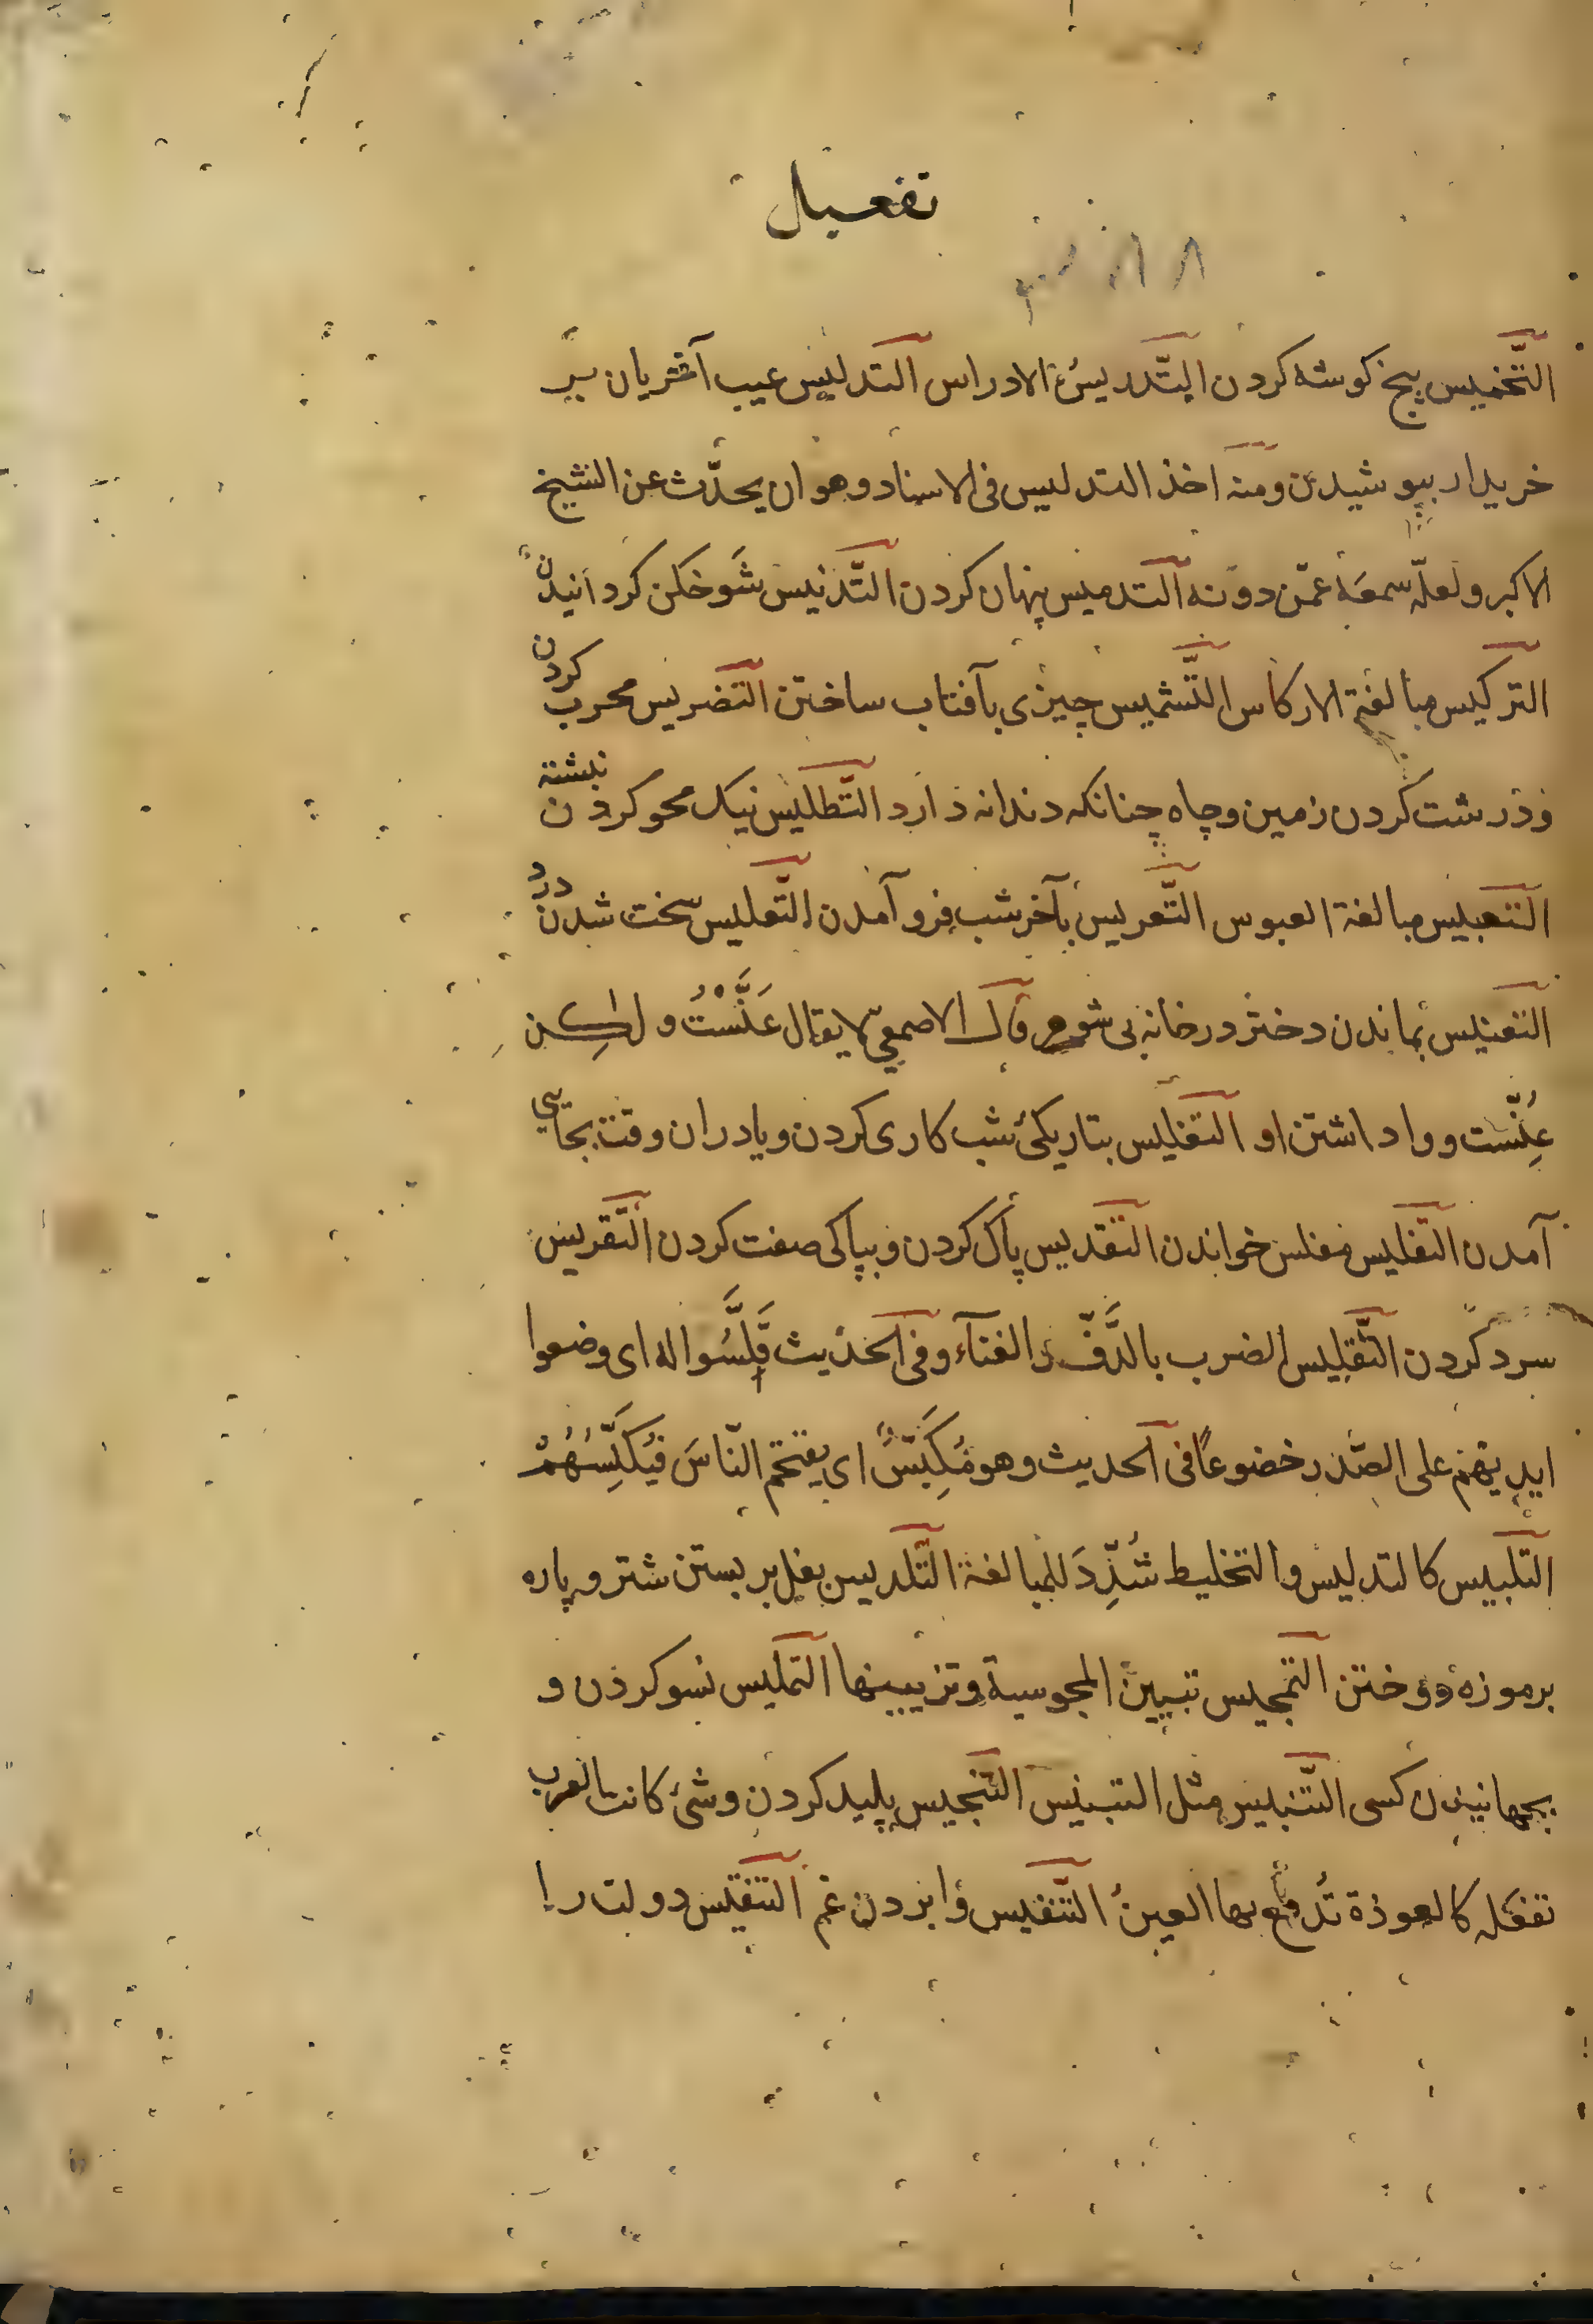 تفعیل
التَّخمیس پنج کوشه کردن التَّدریسُ الادراس التدلیس عیب آخریان بر
خریدار بپوشیدن ومنه اخذ التدلیس فی الاسناد وهو ان یحدّث عن الشیخ
الاکبر ولعلّه سمعَه عمّن دونه التدمیس پنهان کردن التَّدنیس شَوخکن کردانیدن
الترکیس مبالغة الارکاس التَّشمیس چیزی بآفتاب ساختن التضریس محرب کردن
ودرشت کردن زمین وچاه چنانکه دندانه دارد التَّطلیس نیک محو کردن نبشته
التعبیس مبالغة العبوس التَّعریس بآخر شب فرو آمدن التَّعلیس سخت شدن درد
التعنیس بماندن دختر در خانه بی شوهر قال الاصمعیّ لا یقال عَنَّسْتُ ولکن
عُنِّست وواداشتن او التغلیس بتاریکئ شب کاری کردن ویا دران وقت بجایی
آمدن التفلیس مفلس خواندن التقدیس پاک کردن وبپاکی صفت کردن التَّقریس
سرد کردن التَّقلیس الضرب بالدَّفّ والغنآء وفی الحدیث قَلَّسُوا له ای وضعوا
ایدیهم علی الصَّدر خضوعًا فی الحدیث وهو مُکَبِّسٌ ای یقتحم النّاسَ فیُکَبِّسُهُمْ
التَّلبیس کالتدلیس والتخلیط شُدِّدَ للمبالغة التَّلدیس نعل بر بستن شتر و پاره
بر موزه دوختن التمجیس تبیین المجوسیة وتزیینها التملیس نسو کردن و
بجهانیدن کسی التَّنبیس مثل التنبیس التنجیس پلید کردن وشئ کانت العرب
تفعله کالعوذة تُدفع بها العینُ التَّنفیس وابردن غم التنقیس دولت را